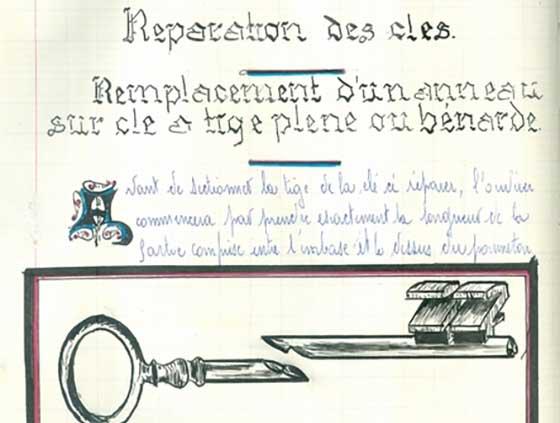 Reparation des cles.
Remplacement d'un anneau
sur cle a tige plene ou bénarde.
Avant de sectionner la tige de la clé à réparer, l'ouvrier
commencera par prendre exactement la longueur de la
partie comprise entre l'embase et le dessus du panneton